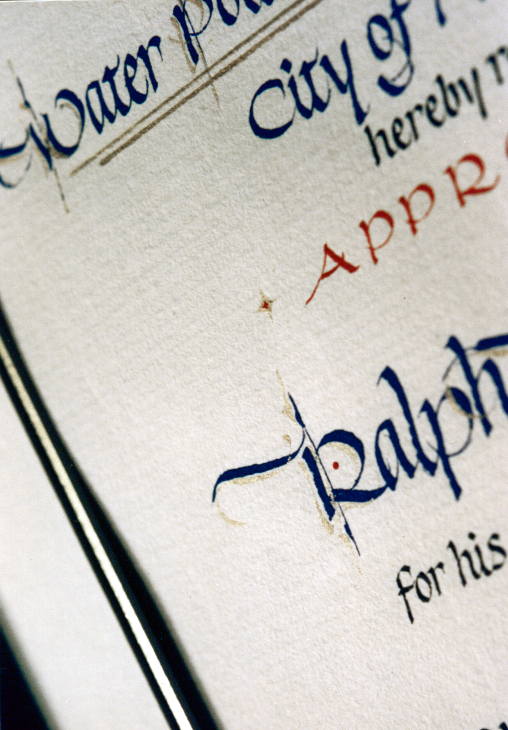 Water
City of
hereby
APPR
Ralph
for his